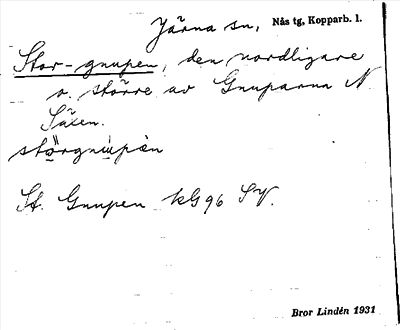 Järna sn, Nås tg, Kopparb. l.
Stor-gnupen, den nordligare
o. större av Gnuparna N.
Säxen.
störgnupän
St. Gnupen kG96 SV.
Bror Lindén 1931